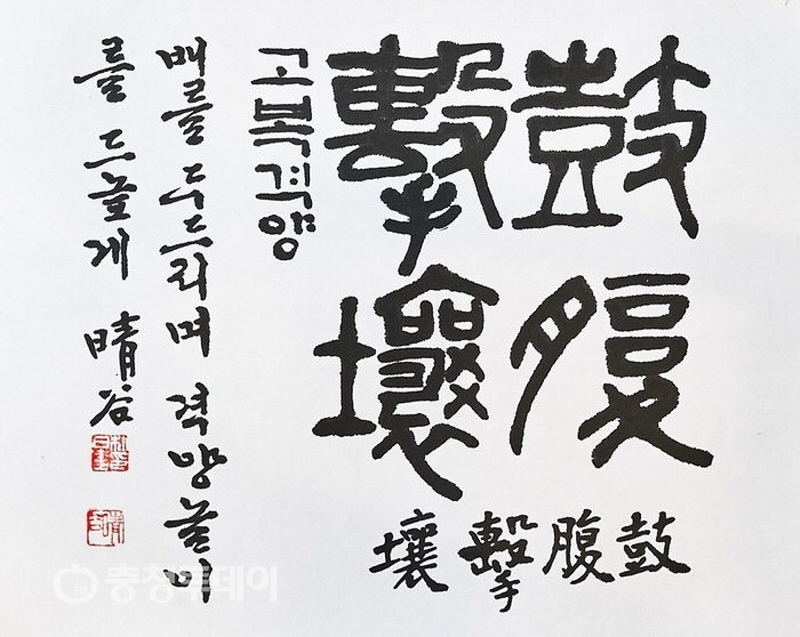 鼓腹
擊壤
鼓腹擊壤
고복격양
배를 두드리며 격양놀이
를 드높게 晴谷
충청투데이